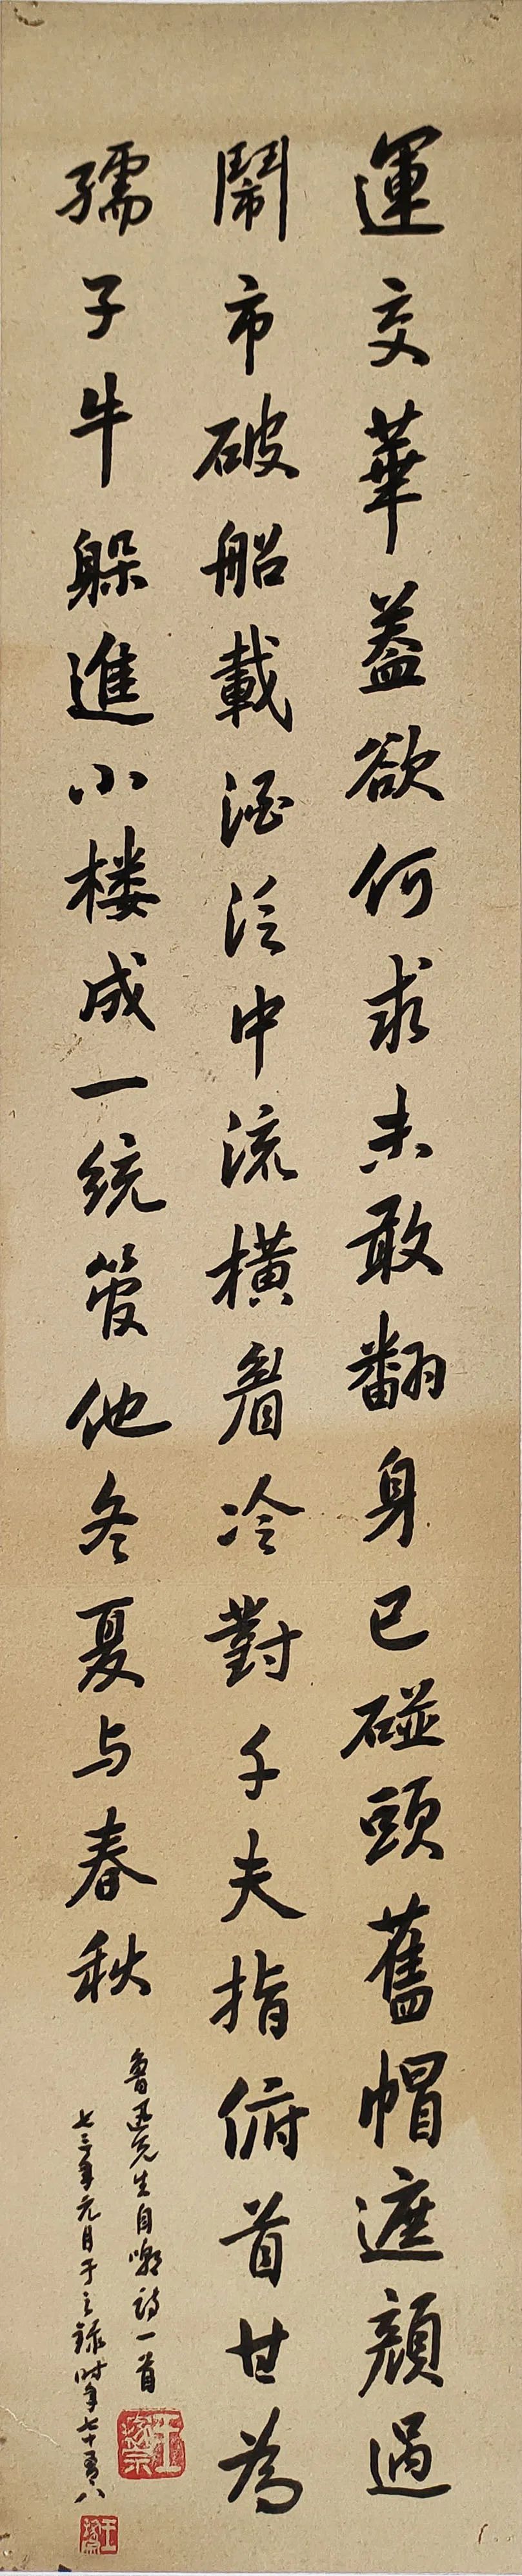 運交華蓋欲何求未敢翻身已碰頭舊帽遮顏過
鬧市破船載酒泛中流橫眉冷對千夫指俯首甘為
孺子牛躲進小楼成一統管他冬夏与春秋
鲁迅先生自嘲詩一首
七三年元月于之録时年七十八